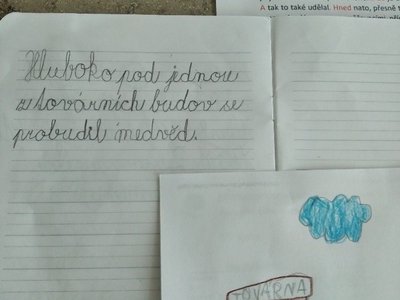 A tak to také udělal. Hned nato, přesně
Hluboko pod jednou
z továrních budov se
probudil medvěd.
TOVÁRNA